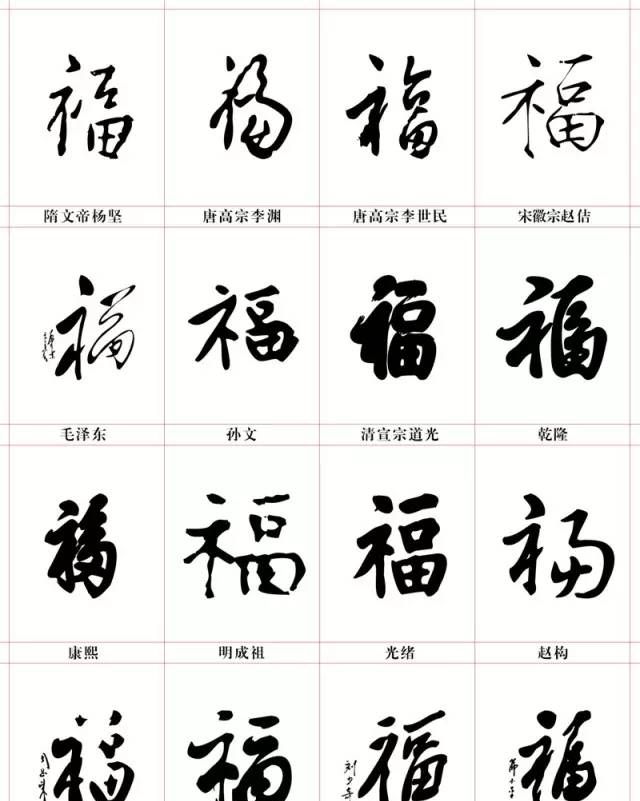 福 福 福 福
隋文帝杨坚 唐高宗李渊 唐高宗李世民 宋徽宗赵佶
福 福 福 福
毛泽东 孙文 清宣宗道光 乾隆
福 福 福 福
康熙 明成祖 光绪 赵构
福 福 福 福
刘少奇